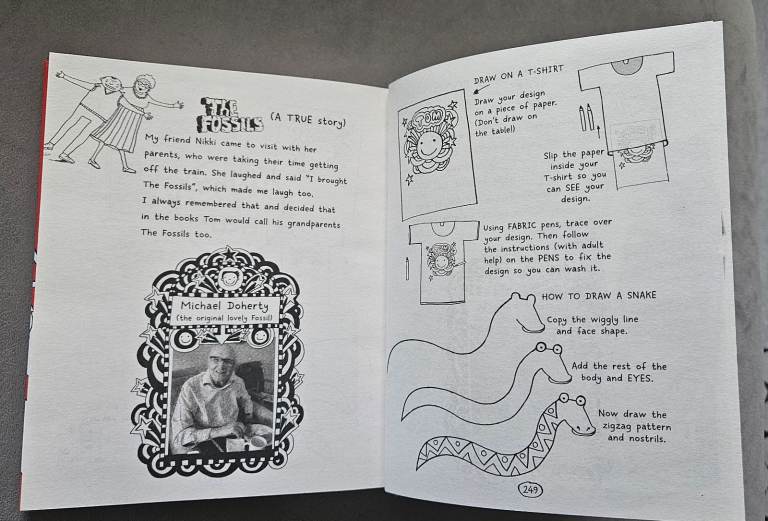 THE
FOSSILS
(A TRUE story)
My friend Nikki came to visit with her
parents, who were taking their time getting
off the train. She laughed and said "I brought
The Fossils", which made me laugh too.
I always remembered that and decided that
in the books Tom would call his grandparents
The Fossils too.
Michael Doherty
(the original lovely Fossil)
DRAW ON A T-SHIRT
Draw your design
on a piece of paper.
(Don't draw on
the table!)
TOM
Slip the paper
inside your
T-shirt so you
can SEE your
design.
Using FABRIC pens, trace over
your design. Then follow
the instructions (with adult
help) on the PENS to fix the
design so you can wash it.
HOW TO DRAW A SNAKE
Copy the wiggly line
and face shape.
Add the rest of the
body and EYES.
Now draw the
zigzag pattern
and nostrils.
249